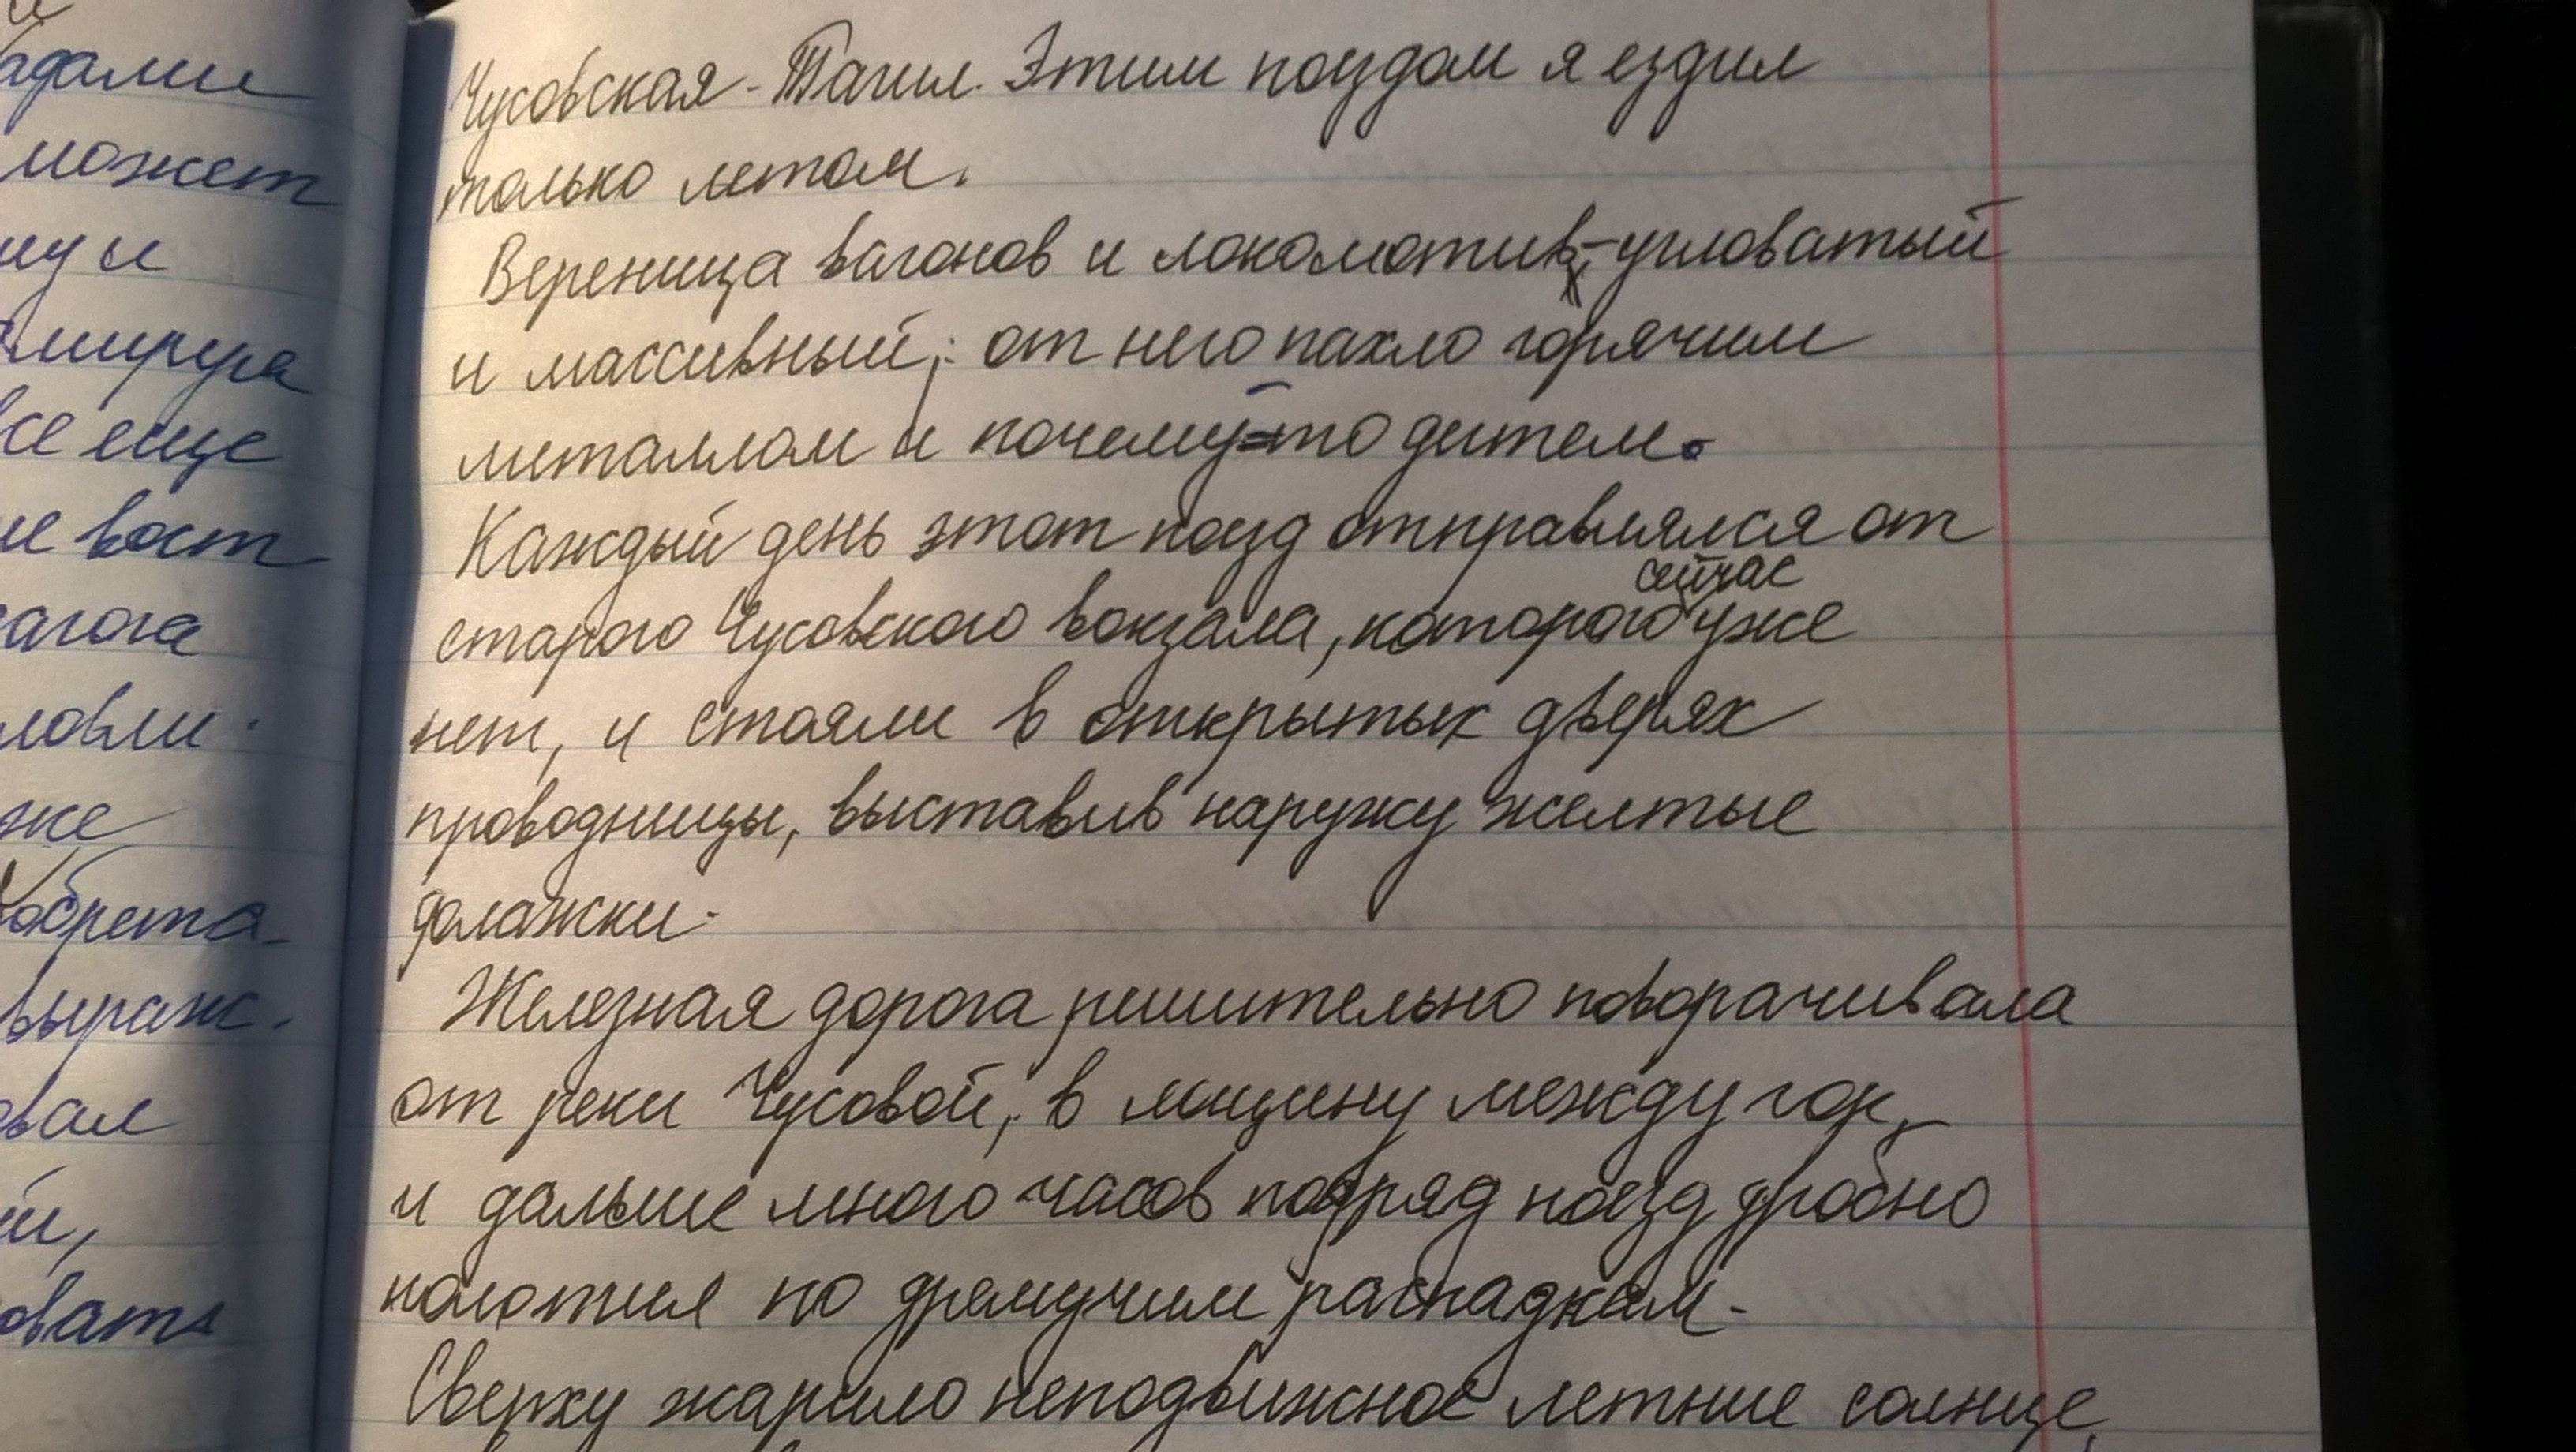 адами
может
ну и
все еще
ловли.
же
выраж.
вал
й,
овать
Чусовская - Тагил. Этим поездом я ездил
только летом.
Вереница вагонов и локомотив - угловатый
и массивный; от него пахло горячим
металлом и почему-то дегтем.
Каждый день этот поезд отправлялся от
сейчас
старого Чусовского вокзала, которого уже
нет, и стояли в открытых дверях
проводницы, выставив наружу желтые
флажки.
Железная дорога решительно поворачивала
от реки Чусовой, в лощину между гор,
и дальше много часов подряд поезд дробно
колотил по дремучим распадкам.
Сверху жарило неподвижное летнее солнце,